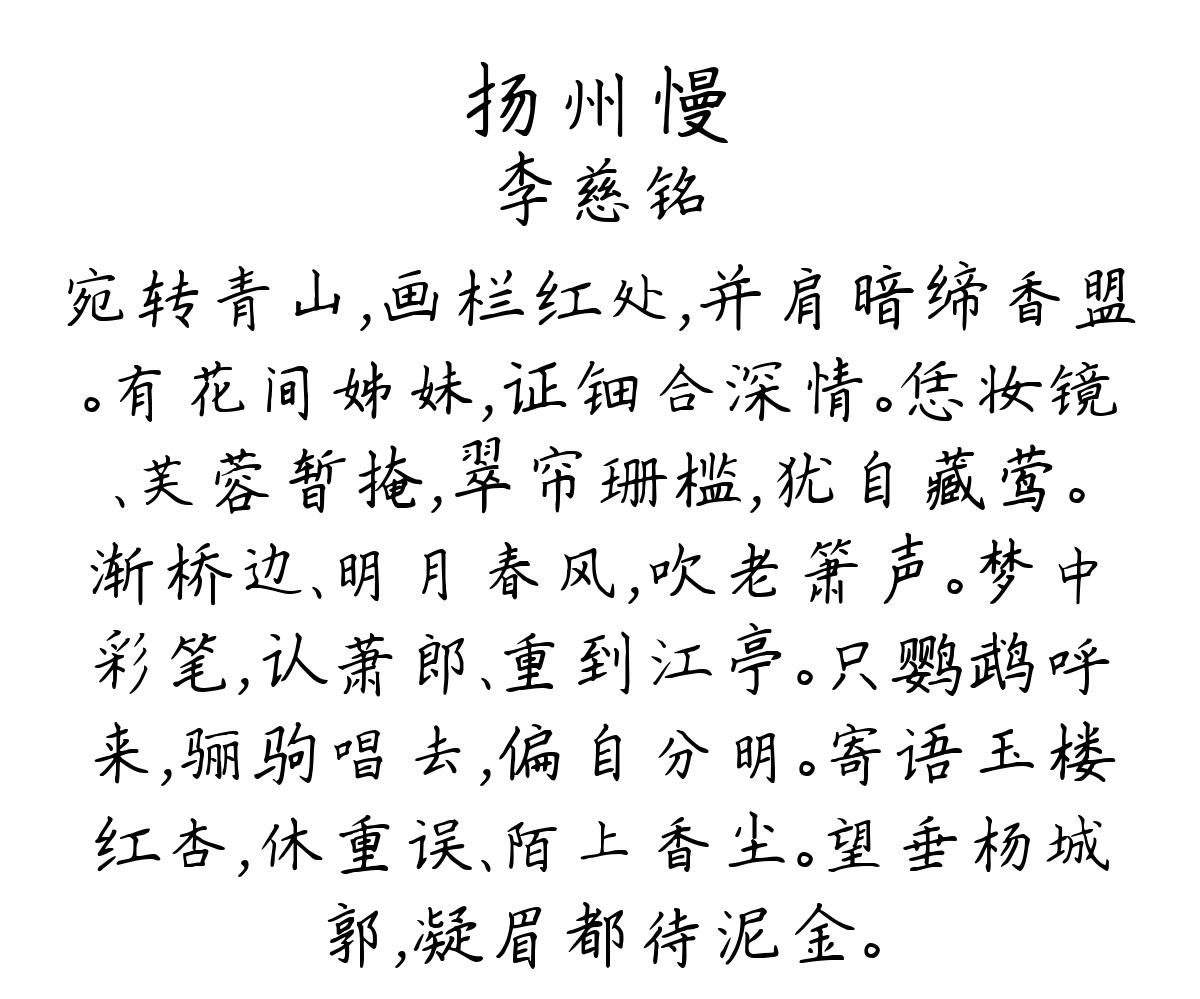 扬州慢
李慈铭
宛转青山,画栏红处,并肩暗缔香盟
。有花间姊妹,证钿合深情。恁妆镜
、芙蓉暂掩,翠帘珊槛,犹自藏莺。
渐桥边、明月春风,吹老箫声。梦中
彩笔,认萧郎、重到江亭。只鹦鹉呼
来,骊驹唱去,偏自分明。寄语玉楼
红杏,休重误、陌上香尘。望垂杨城
郭,凝眉都待泥金。